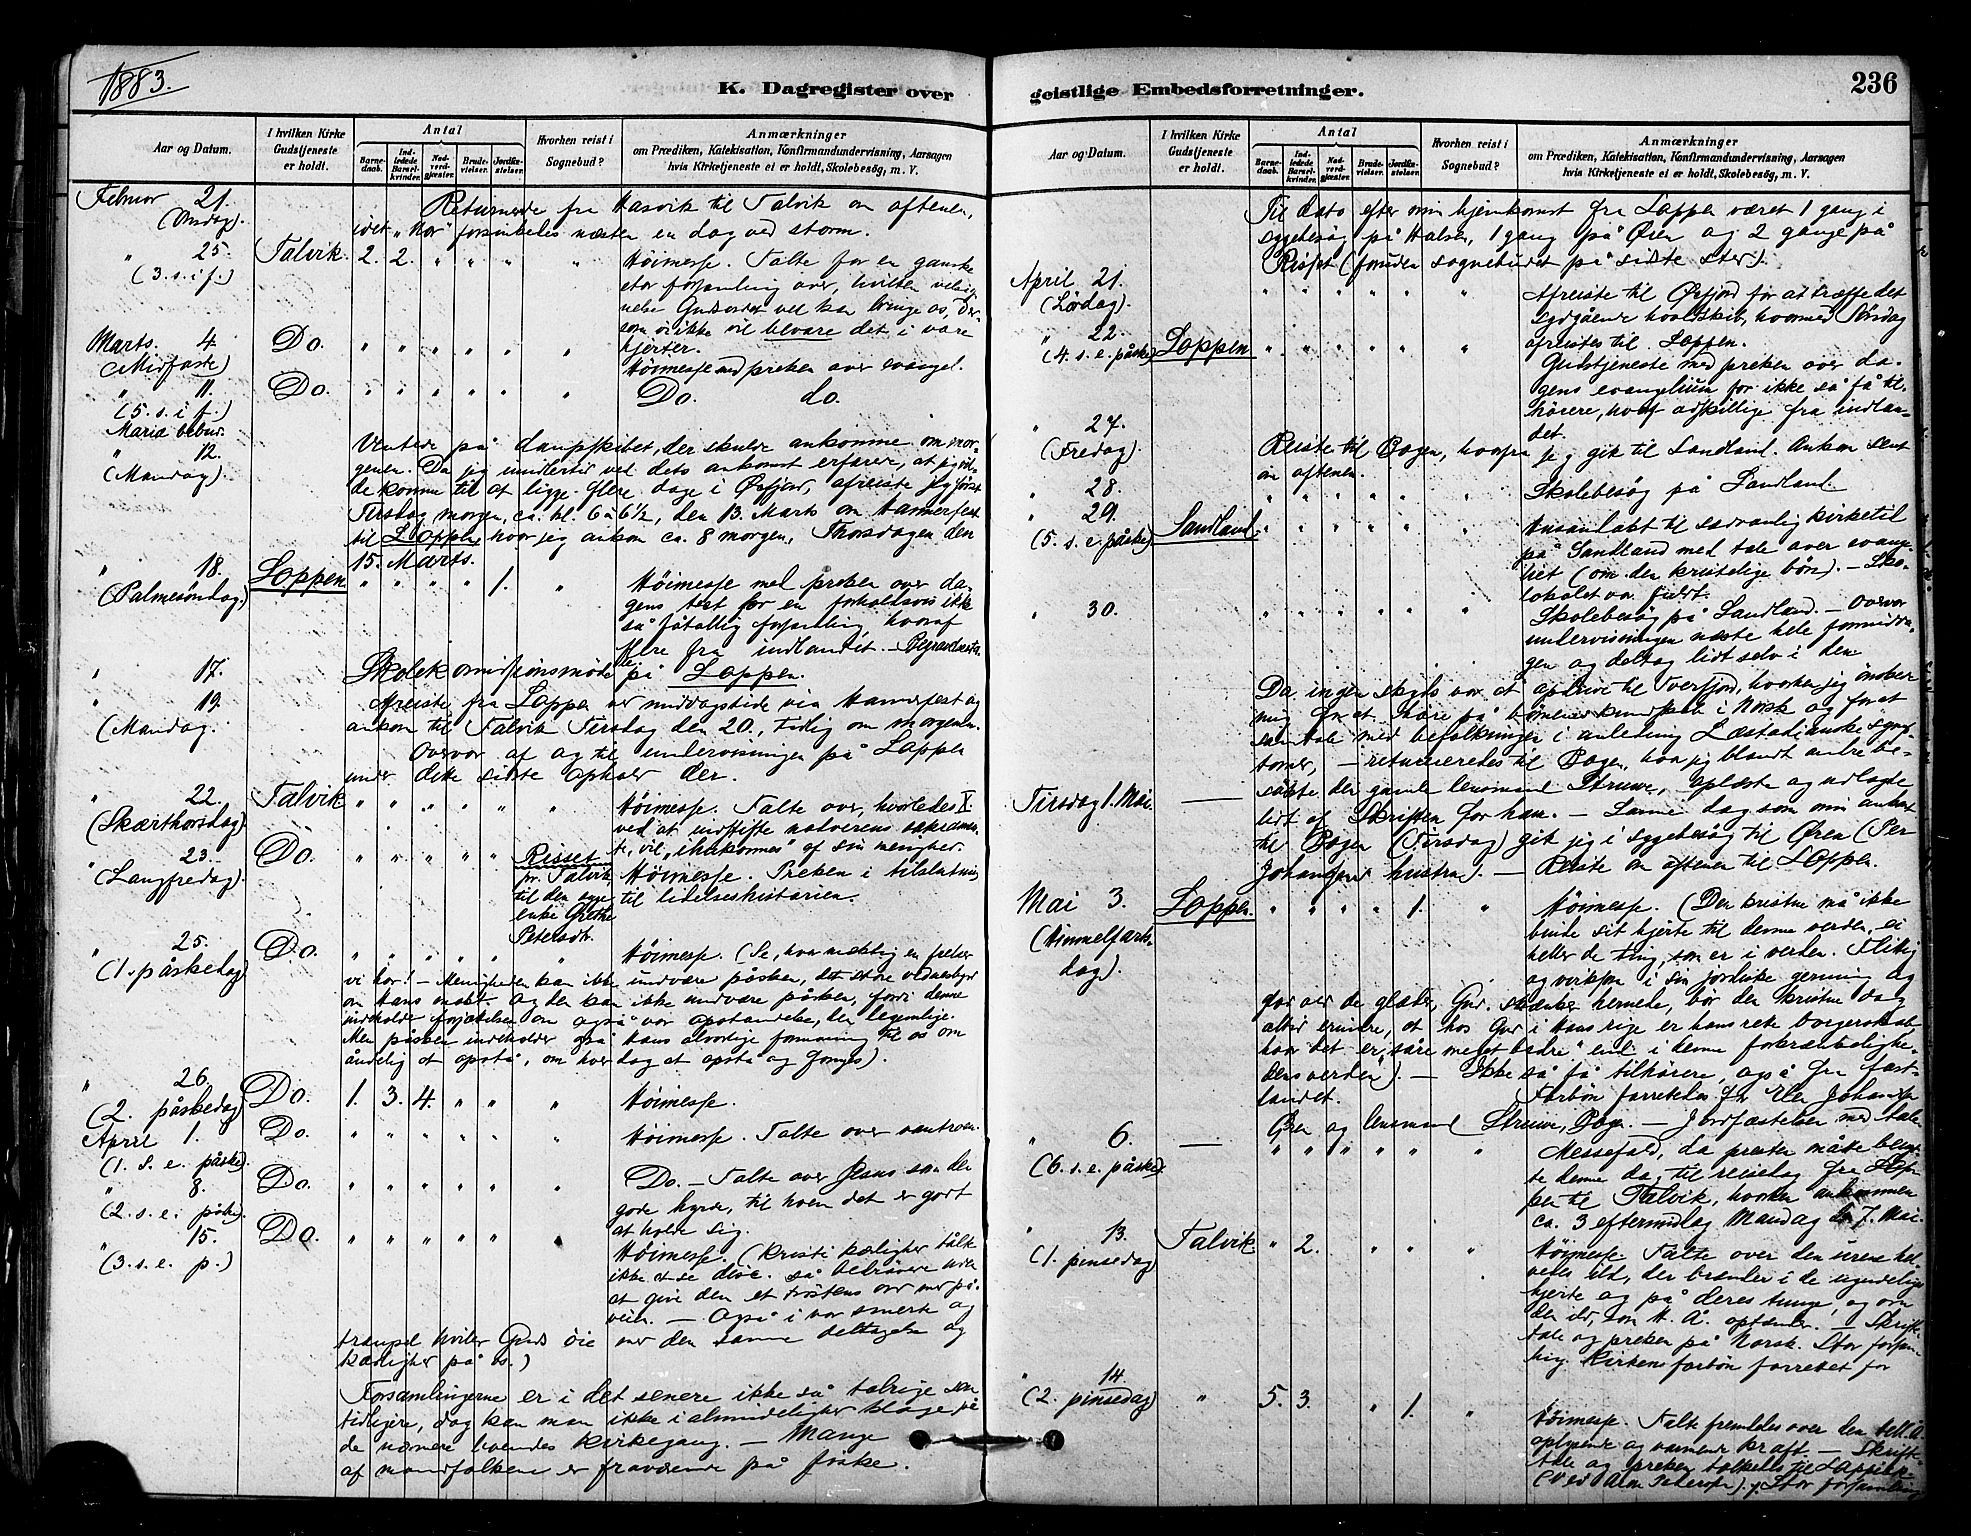 1883.
K. Dagregister over
Aar og Datum.
I hvilken Kirke Gudstjeneste er holdt.
Antal
Barnedaab.
Indledede Barselkvinder.
Nadverdgjæster.
Brudevielser.
Jordfæstelser.
Hvorhen reist i Sognebud?
Anmærkninger
om Prædiken, Katekisation, Konfirmandundervisning, Aarsagen
hvis Kirketjeneste ei er holdt, Skolebesøg, m. V.
Februar 21. (Onsdag). Returnerede fra Hasvik til Talvik om aftenen,
idet "Nor" forsinkedes næsten en dag ved storm.
" 25. (3. s. i f.) Talvik. 2. 2. " " " " Høimesse. Talte for en ganske
stor forsamling over, hvilken velsig-
nelse Gudsordet vel kan bringe os, der-
som vi ikke vil bevare det i vore
hjerter.
Marts. 4. (Midfaste) Do. " " " " " " Høimesse med preken over evangel.
" 11. (5. s. i f.) Maria bebud. Do. " " " " " " Do. do.
" 12. (Mandag) Ventede på dampskibet, der skulde ankomme om mor-
genen. Da jeg imidlertid ved dets ankomst erfarede, at jeg vil-
de komme til at ligge flere dage i Øxfjord, afreiste jeg først
Tirsdag morgen, ca. kl. 6 à 6 1/2, den 13. Marts om Hammerfest
til Loppen, hvor jeg ankom ca. 8 morgen, Thorsdagen den
15. Marts.
" 18. (Palmesøndag) Loppen. " " " 1. " " Høimesse med preken over da-
gens text for en forholdsvis ikke
så fåtallig forsamling hvoraf
flere fra indlandet.
" 17. Skolekommissionsmøde på Loppen.
" 19. (Mandag. Afreiste fra Loppen ved middagstide via Hammerfest og
ankom til Talvik Tirsdag den 20., tidlig om morgenen.
Overvar af og til undervisningen på Loppen
under dette sidste ophold der.
" 22. (Skærthorsdag) Talvik " " " " " " Høimesse. Talte over, hvorledes X.
ved at indstifte nadverens sakramen-
te, vil "ihukommes" af sin menighed.
" 23. (Langfredag). Do. " " " " " Risset
pr. Talvik,
til den syge
enke Grethe
Petersdt.
Høimesse. Preken i tilslutning
til lidelseshistorien.
" 25. (1. påskedag) Do. " " " " " " Høimesse. (Se, hvor mæktig en frelser
vi har! – Menigheden kan ikke undvære påsken, det store vidnesbyrd
om Hans makt. Og den kan ikke undvære påsken, fordi denne
indholder forjættelsen om også vor opstandelse, den legemlige.
Men påsken indeholder også Hans alvorlige formaning til os om
åndelig at opstå, om hver dag at opstå og fornyes).
" 26. (2. påskedag) Do. 1. 3. 4. " " " Høimesse.
April 1. (1. s. e. påske). Do. " " " " " " Høimesse. Talte over vantroen.
" 8. (2. s. e. påske). Do. " " " " " " Do. – Talte over Jesus som den
gode hyrde, til hvem det er godt
at holde sig.
" 15. (3. s. e. p.) Do. " " " " " Høimesse. (Kristi kærlighed tålte
ikke at se disc. så bedrøvede uden
at give dem et trøstens ord med på
veien. – Også i vor smerte og
trængsel hviler Guds øie med den samme deltagelse og
kærlighed på os.)
Forsamlingerne er i det senere ikke så talrige som
tidligere, dog kan man ikke i almindelighed klage på
de nærmere boendes kirkegang. – Mange
af mandfolkene er fraværende på fiske.
geistlige Embedsforretninger.
236
Aar og Datum.
I hvilken Kirke Gudstjeneste er holdt.
Antal
Barnedaab.
Indledede Barselkvinder.
Nadverdgjæster.
Brudevielser.
Jordfæstelser.
Hvorhen reist i Sognebud?
Anmærkninger
om Prædiken, Katekisation, Konfirmandundervisning, Aarsagen
hvis Kirketjeneste ei er holdt, Skolebesøg, m. V.
Til dato efter min hjemkomst fra Loppen været 1 gang i
sygebesøg på Halsen, 1 gang på Øren og 2 gange på
Risset (foruden sognebudet på sidste sted).
April 21. (Lørdag). " " " " " " Afreiste til Øxfjord for at træffe det
sydgående hvalskib, hvormed Søndag
afreistes til Loppen.
" 22. (4. s. e. påske) Loppen " " " " " " Gudstjeneste med preken over da-
gens evangelium for ikke så få til-
hørere, hvoraf adskillige fra indlan-
det.
" 27. (Fredag). Reiste til Bogen, hvorfra jeg gik til Sandland. Ankom sent
om aftenen.
" 28. " " " " " " Skolebesøg på Sandland.
" 29. (5. s. e. påske) Sandland. " " " " " " Husandakt til sædvanlig kirketid
på Sandland med tale over evange-
liet (om den kristelige bøn). – Sko-
lokalet var fuldt.
" 30. " " " " " " Skolebesøg på Sandland. – Overvar
undervisningen næste hele formidda-
gen og deltog lidt selv i den
Da ingen skyds var at opdrive til Tverfjord, hvorhen jeg ønsker
mig for at høre på børnenes kundskab i Norsk og for at
samtale med befolkningen i anledning Læstadianske symp-
tomer, – returneredes til Bogen, hvor jeg blandt andre be-
Tirsdag 1. Mai. — søkte den gamle lensmand Struwe, oplæste og udlagde
lidt af Skriften for ham. – Samme dag som min ankomst
til Bogen (Tirsdag) gik jeg i sygebesøg til Øren (Per
Johansens hustru). – Reiste om aftenen til Loppen.
Mai 3. (Himmelfarts-
dag). Loppen. " " " " 1. " Høimesse. (Den kristne må ikke
binde sit hjerte til denne verden, ei
heller de ting, som er i verden. Flittig
og virksom i sin jordiske gerning og
glad over de glæder, Gud skænker hernede, bør den kristne dog
altid erindre, at hos Gud i Hans rige er hans rette borgerskab,
hvor det er "såre meget bedre" end i denne forkrænkelighe-
dens verden). – Ikke så få tilhørere, også fra fast-
landet. Forbøn forrettedes for Johansen
Øren og lensmand Struwe, Bogen. – Jordfæstelsen med tale
" 6. (6. s. e. påske). — " " " " " " Messefald, da presten måtte benyt-
te denne dag til reisedag fra Lop-
pen til Talvik, hvorhen ankommen
ca. 3 eftermiddag Mandag d. 7. Mai.
" 13. (1. pinsedag) Talvik " 2. " " " Høimesse. Talte over den urene hel-
vedes ild, der brænder i de ugudeliges
hjerte og på deres tunge, og om
den ild, som H. Å. optænder. – Skrift-
tale og preken på Norsk. Stor forsam-
ling. Kirkens forbøn forrettet for
" 14. (2. pinsedag) " 5. 3. " 1. " Høimesse. Talte fremdeles over den hell. Å.
oplysende og varmende kraft. – Skrift-
tale og preken tolkedes til Lappisk
Stor forsamling